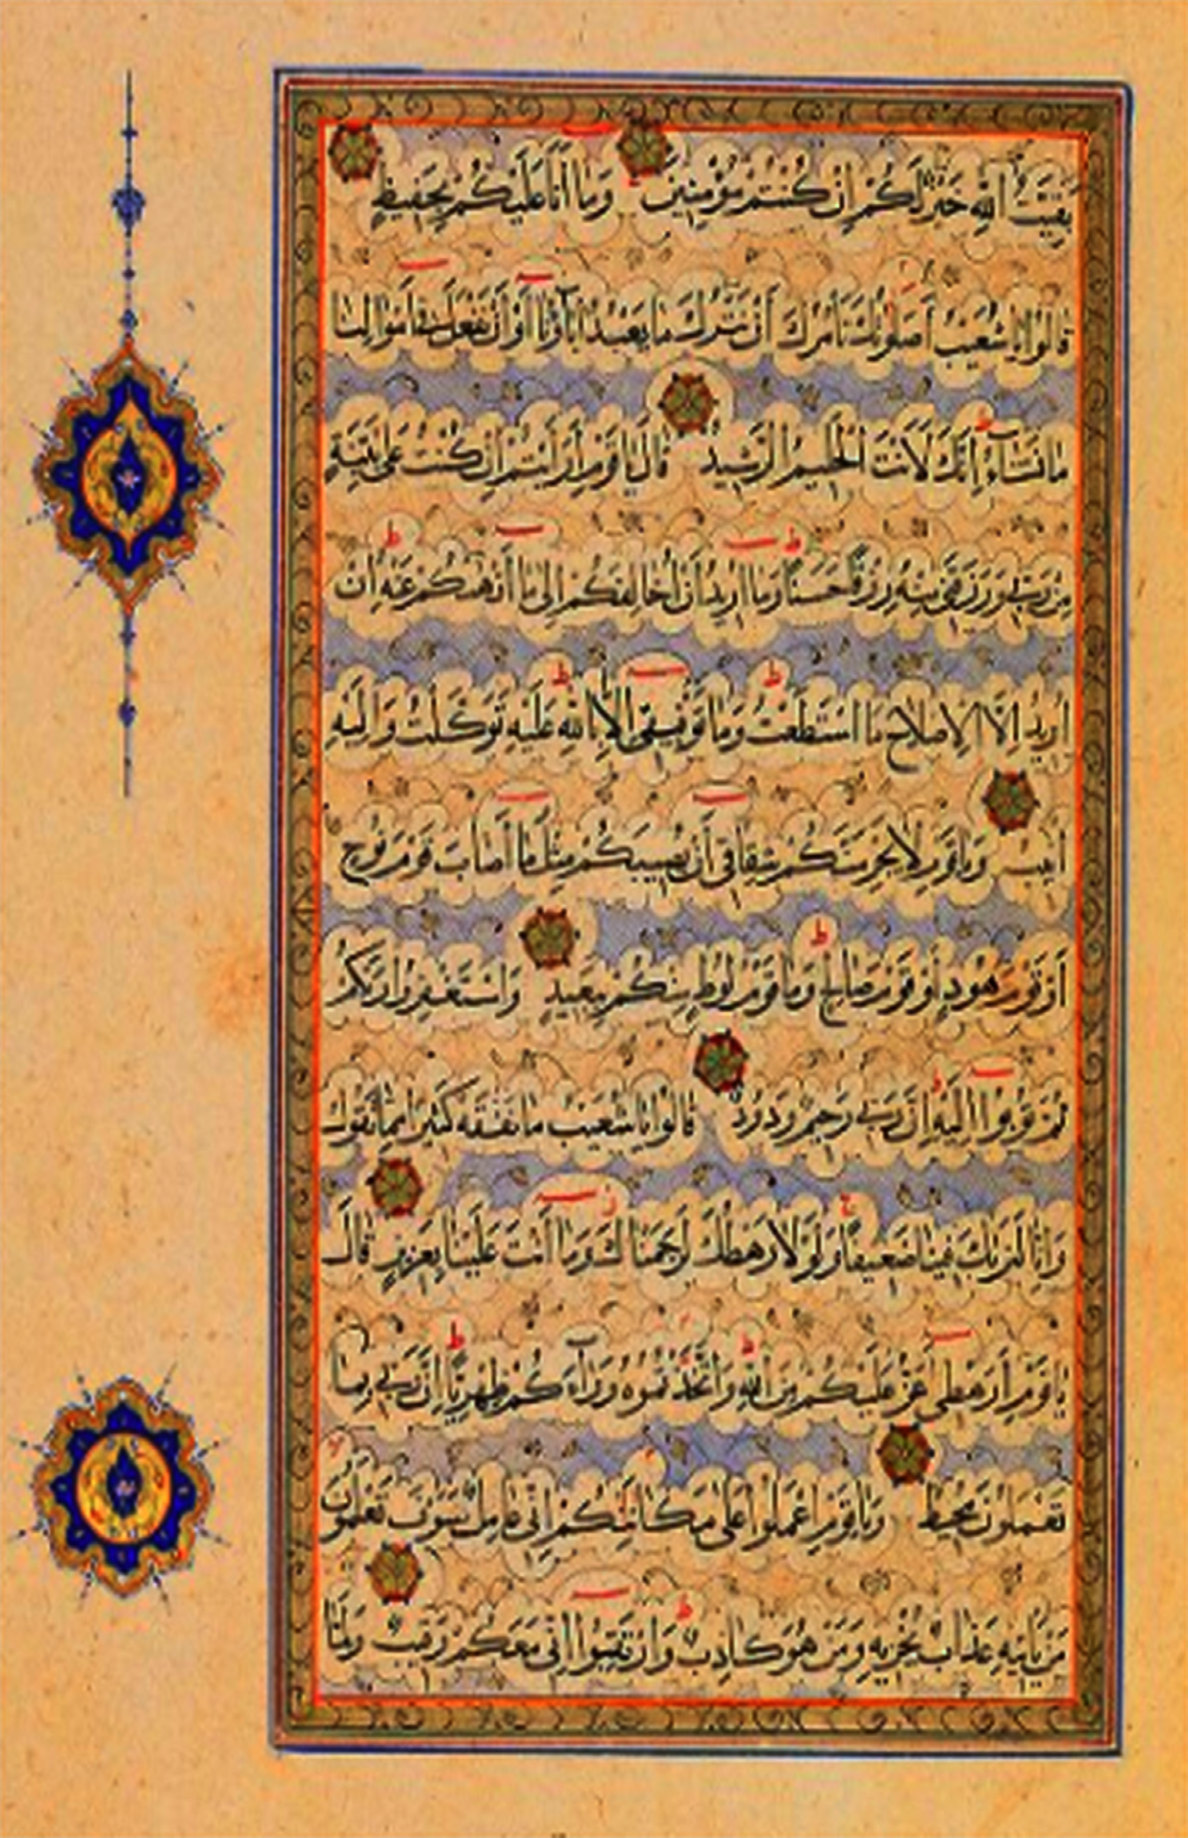 بَقِيَّتُ اللّٰهِ خَيْرٌ لَكُمْ اِنْ كُنْتُمْ مُؤْمِنِينَ وَمَا اَنَا عَلَيْكُمْ بِحَفِيظٍ
قَالُوا يَا شُعَيْبُ اَصَلٰوتُكَ تَأْمُرُكَ اَنْ نَتْرُكَ مَا يَعْبُدُ اٰبَاؤُنَا اَوْ اَنْ نَفْعَلَ فِى اَمْوَالِنَا
مَا نَشَاءُ اِنَّكَ لَاَنْتَ الْحَلِيمُ الرَّشِيدُ قَالَ يَا قَوْمِ اَرَاَيْتُمْ اِنْ كُنْتُ عَلٰى بَيِّنَةٍ
مِنْ رَبِّى وَرَزَقَنِى مِنْهُ رِزْقًا حَسَنًا وَمَا اُرِيدُ اَنْ اُخَالِفَكُمْ اِلٰى مَا اَنْهٰيكُمْ عَنْهُ اِنْ
اُرِيدُ اِلَّا الْاِصْلَاحَ مَا اسْتَطَعْتُ وَمَا تَوْفِيقِى اِلَّا بِاللّٰهِ عَلَيْهِ تَوَكَّلْتُ وَاِلَيْهِ
اُنِيبُ وَيَا قَوْمِ لَا يَجْرِمَنَّكُمْ شِقَاقِى اَنْ يُصِيبَكُمْ مِثْلُ مَا اَصَابَ قَوْمَ نُوحٍ
اَوْ قَوْمَ هُودٍ اَوْ قَوْمَ صَالِحٍ وَمَا قَوْمُ لُوطٍ مِنْكُمْ بِبَعِيدٍ وَاسْتَغْفِرُوا رَبَّكُمْ
ثُمَّ تُوبُوا اِلَيْهِ اِنَّ رَبِّى رَحِيمٌ وَدُودٌ قَالُوا يَا شُعَيْبُ مَا نَفْقَهُ كَثِيرًا مِمَّا تَقُولُ
وَاِنَّا لَنَرٰيكَ فِينَا ضَعِيفًا وَلَوْلَا رَهْطُكَ لَرَجَمْنَاكَ وَمَا اَنْتَ عَلَيْنَا بِعَزِيزٍ قَالَ
يَا قَوْمِ اَرَهْطِى اَعَزُّ عَلَيْكُمْ مِنَ اللّٰهِ وَاتَّخَذْتُمُوهُ وَرَاءَكُمْ ظِهْرِيًّا اِنَّ رَبِّى بِمَا
تَعْمَلُونَ مُحِيطٌ وَيَا قَوْمِ اعْمَلُوا عَلٰى مَكَانَتِكُمْ اِنِّى عَامِلٌ سَوْفَ تَعْلَمُونَ
مَنْ يَأْتِيهِ عَذَابٌ يُخْزِيهِ وَمَنْ هُوَ كَاذِبٌ وَارْتَقِبُوا اِنِّى مَعَكُمْ رَقِيبٌ وَلَمَّا